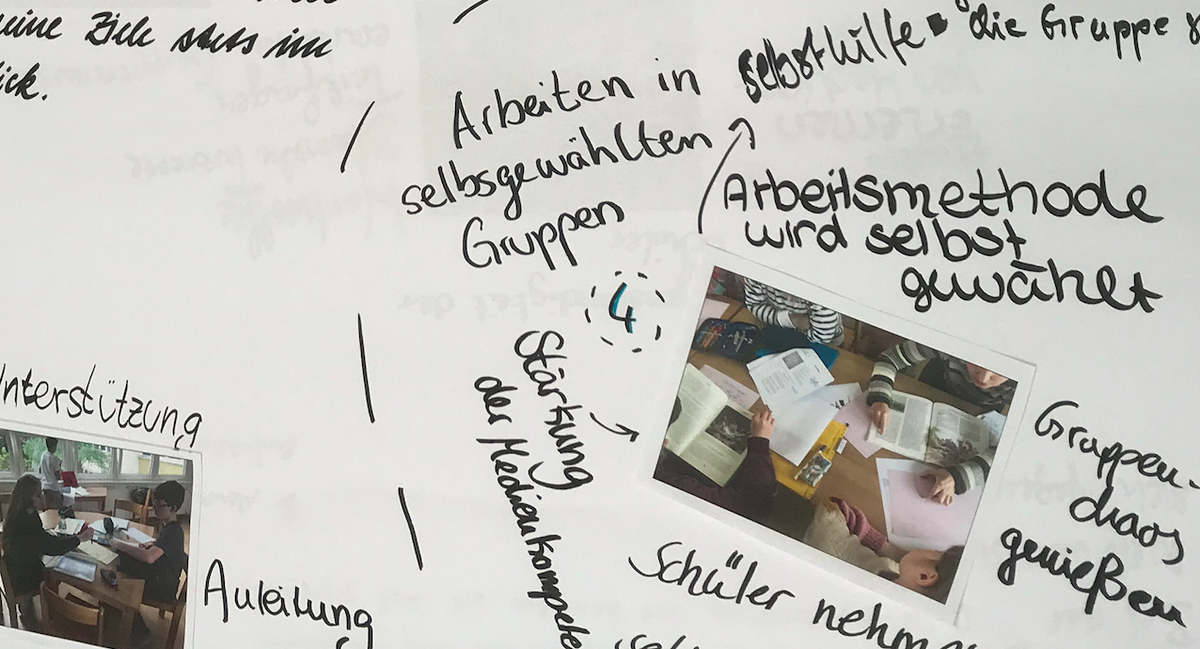 eine Ziele stets im
Arbeiten in
selbsgewählten
Gruppen
selbsthilfe • die Gruppe
Arbeitsmethode
wird selbst
gewählt
4
Stärkung
der Medienkompete
Unterstützung
Anleitung
Gruppen-
chaos
genießen
Schüler nehm